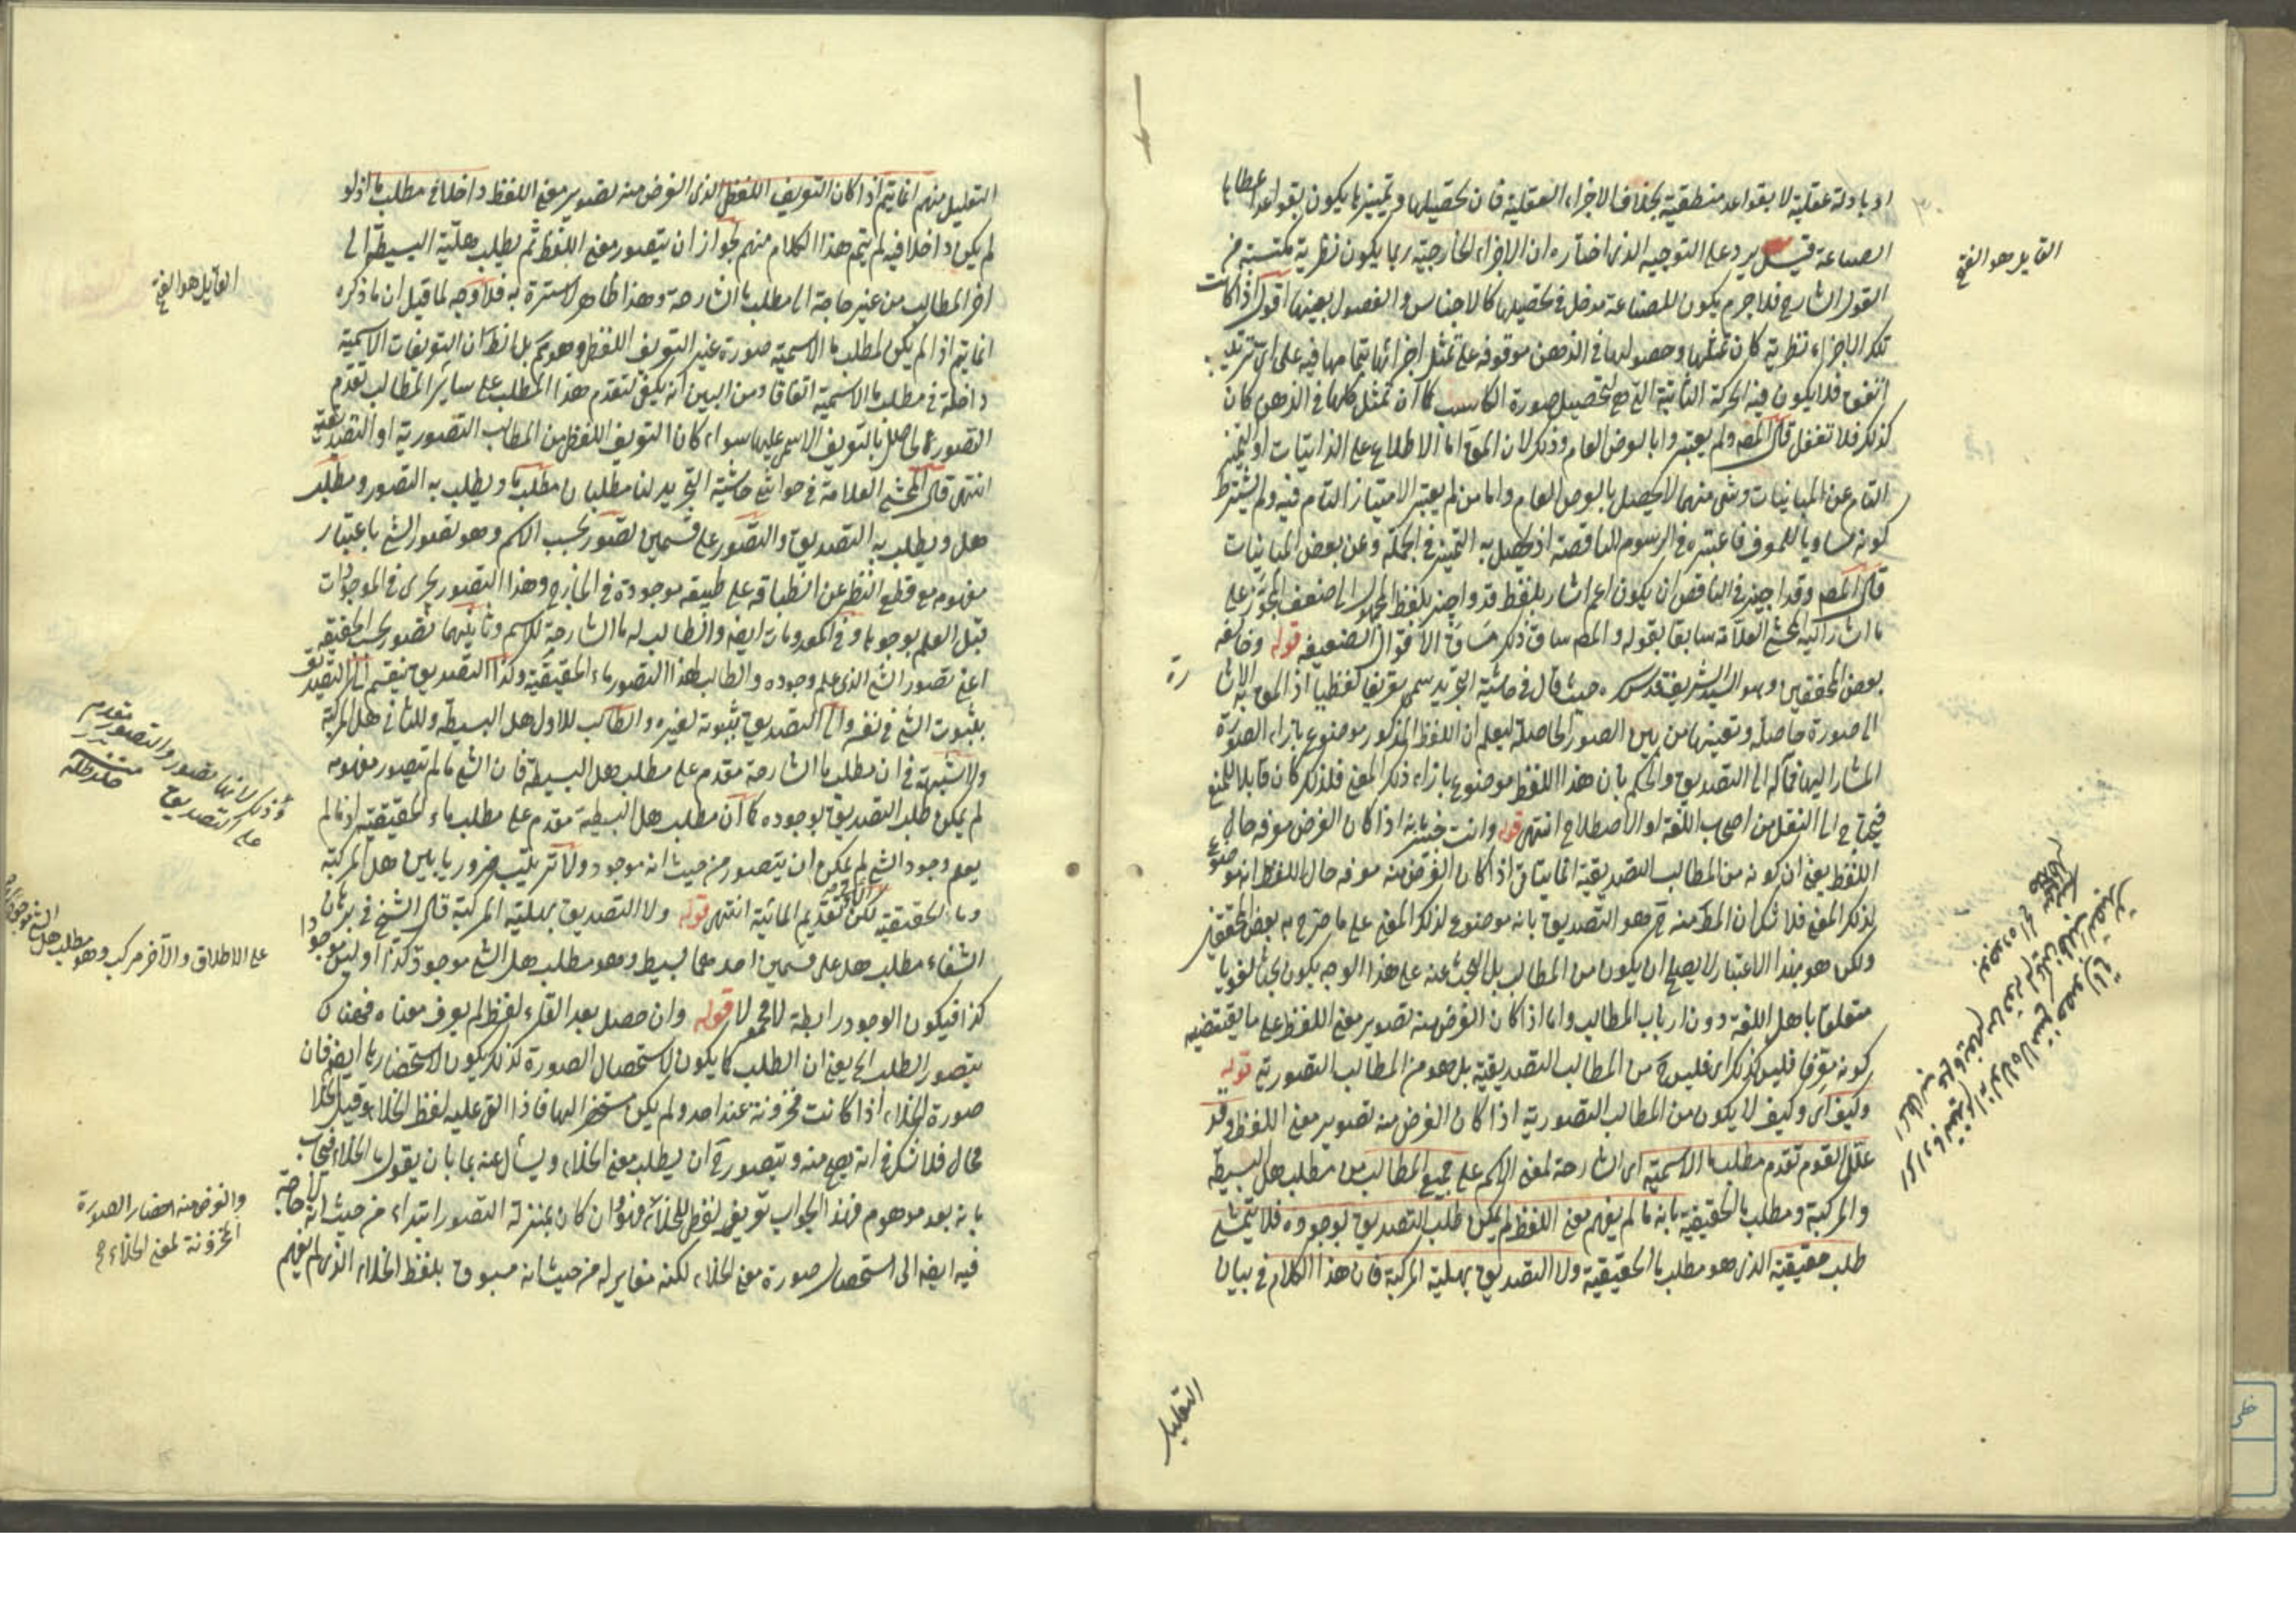 او بادلة عقلية لا بقواعد منطقية بخلاف الاجزاء العقلية فان تحصيلها وتمييزها يكون بقواعد
الصناعة قيل يرد على التوجيه الذى اختاره ان الاجزاء الخارجية ربما يكون نظرية مكتسبة من
القول الشارح فلا جرم يكون للصناعة مدخل فى تحصيلها كالاجناس والفصول بعينها اقول اذا كانت
تلك الاجزاء نظرية كان تمثلها وحصولها فى الذهن موقوفة على تمثل اجزائها بتمامها فيه على اى ترتيب
اتفق فلا يكون فيه الحركة الثانية التى هى لتحصيل صورة الكاسب كما ان تمثل كلها فى الذهن كان
كذلك فلا تغفل قال المصه ولم يعتبروا بالعرض العام وذلك لان المق اما الاطلاع على الذاتيات او التميز
التام عن المباينات وشئ منهما لا يحصل بالعرض العام واما من لم يعتبر الامتياز التام فيه ولم يشترط
كونه مساويا للمعرف فاعتبره فى الرسوم الناقصة اذ يحصل به التميز فى الجملة وعن بعض المباينات
قال المصه وقد اجيز فى الناقص ان يكون اعم اشار بلفظ قد واجيز بلفظ المجهول الى ضعف المجوز على
ما اشار اليه المحشى العلامة سابقا بقوله والمصه ساق ذلك مساق الاقوال الضعيفه قوله وخالفه
بعض المحققين وهو السيد الشريف قدس سره حيث قال فى حاشية التجريد سمى تعريفا لفظيا اذ المق به الاشا
رة
الى صورة حاصلة وتعينها من بين الصور الحاصلة ليعلم ان اللفظ المذكور موضوع بازاء الصورة
المشار اليها فمآله الى التصديق والحكم بان هذا اللفظ موضوع بازاء ذلك المعنى فلذلك كان قابلا للمنع
فيحتاج الى النقل من اصحاب اللغة او الاصطلاح انتهى قوله وانت خبير بانه اذا كان الغرض معرفة حال
اللفظ يعنى ان كونه من المطالب التصديقية انما يتأتى اذا كان الغرض منه معرفة حال اللفظ انه موضوع
لذلك المعنى فلا شك ان المط منه ح هو التصديق بانه موضوع لذلك المعنى على ما صرح به بعض المحققين
ولكن هو بهذا الاعتبار لا يصلح ان يكون من المطالب بل البحث عنه على هذا الوجه يكون بحثا لغويا
متعلقا باهل اللغة دون ارباب المطالب واما اذا كان الغرض منه تصوير معنى اللفظ على ما يقتضيه
كونه معرفا فليس كذلك اى فليس ح من المطالب التصديقية بل هو من المطالب التصورية قوله
وكيف اى وكيف لا يكون من المطالب التصورية اذا كان الغرض منه تصوير معنى اللفظ وقد
علل القوم تقدم مطلب ما الاسمية اى الشارحة لمعنى الاسم على جميع المطالب من مطلب هل البسيطة
والمركبة ومطلب ما الحقيقية بانه ما لم يفهم معنى اللفظ لم يمكن طلب التصديق بوجوده فلا يتمشى
طلب حقيقية الذى هو مطلب ما الحقيقية ولا التصديق بهلية المركبة فان هذا الكلام فى بيان
التعليل
القايل هو الفتحى
التعليل منهم انما يتم اذا كان التعريف اللفظى الذى الغرض منه تصوير معنى اللفظ داخلا فى مطلب ما اذ لو
لم يكن داخلا فيه لم يتم هذا الكلام منهم لجواز ان يتصور معنى اللفظ ثم يطلب هليته البسيطة الى
اخر المطالب من غير حاجة الى مطلب ما الشارحة وهذا ظاهر لا سترة به فلا وجه لما قيل ان ما ذكره
انما يتم اذا لم يكن لمطلب ما الاسمية صورة غير التعريف اللفظى وهو مم بل الظ ان التعريفات الاسمية
داخلة فى مطلب ما الاسمية اتفاقا ومن البين انه يكفى لتقدم هذا المطلب على ساير المطالب تقدم
التصور الحاصل بالتعريف الاسمى عليها سواء كان التعريف اللفظى من المطالب التصورية او التصديقية
انتهى قال المحشى العلامة فى حواشى حاشية التجريد لنا مطلبان مطلب ما ويطلب به التصور ومطلب
هل ويطلب به التصديق والتصور على قسمين تصور بحسب الاسم وهو تصور الشئ باعتبار
مفهومه مع قطع النظر عن انطباقه على طبيعة موجودة فى الخارج وهذا التصور يجرى فى الموجودات
قبل العلم بوجودها وفى المعدومات ايضه والطالب له ما الشارحة للاسم وثانيهما تصور بحسب الحقيقه
اعنى تصور الشئ الذى علم وجوده والطالب لهذا التصور ماء الحقيقية وكذا التصديق ينقسم الى التصديق
بثبوت الشئ فى نفسه والى التصديق بثبوته لغيره والطالب للاول هل البسيطة وللثانى هل المركبة
ولا شبهة فى ان مطلب ما الشارحة مقدم على مطلب هل البسيطة فان الشئ ما لم يتصور مفهومه
لم يمكن طلب التصديق بوجوده كما ان مطلب هل البسيطة مقدم على مطلب ماء الحقيقية اذ ما لم
يعلم وجود الشئ لم يمكن ان يتصور من حيث انه موجود ولا ترتيب ضروريا بين هل المركبة
وما الحقيقية لكن الاولى تقديم المائية انتهى قوله ولا التصديق بهلية المركبة قال الشيخ فى برهان
الشفاء مطلب هل على قسمين احدهما بسيط وهو مطلب هل الشئ موجود كذا او ليس موجودا
كذا فيكون الوجود رابطة لا محمولا قوله وان حصل بعد القاء لفظ لم يعرف معناه فح
يتصور الطلب الخ يعنى ان الطلب كما يكون لاستحصال الصورة كذلك يكون لاستحضارها ايضه فان
صورة الخلاء اذا كانت مخزونة عند احد ولم يكن مستحضرا لها فاذا القى عليه لفظ الخلاء وقيل الخلا
محال فلا شك فى انه يصح منه ويتصور ح ان يطلب معنى الخلاء ويسأل عنه بما بان يقول ما الخلاء فيجاب
بانه بعد موهوم فهذا الجواب تعريف لفظى للخلاء فهو وان كان بمنزلة التصور ابتداء من حيث انه لا حاجة
فيه ايضه الى استحصال صورة معنى الخلاء لكنه مغاير له من حيث انه مسبوق بلفظ الخلاء الذى لم يفهم
القايل هو الفتحى
وذلك لانها تصور والتصور مقدم
على التصديق
منه مد ظله
على الاطلاق والآخر مركب وهو مطلب هل الشئ
والغرض منه احضار الصورة
المخزونة لمعنى الخلاء